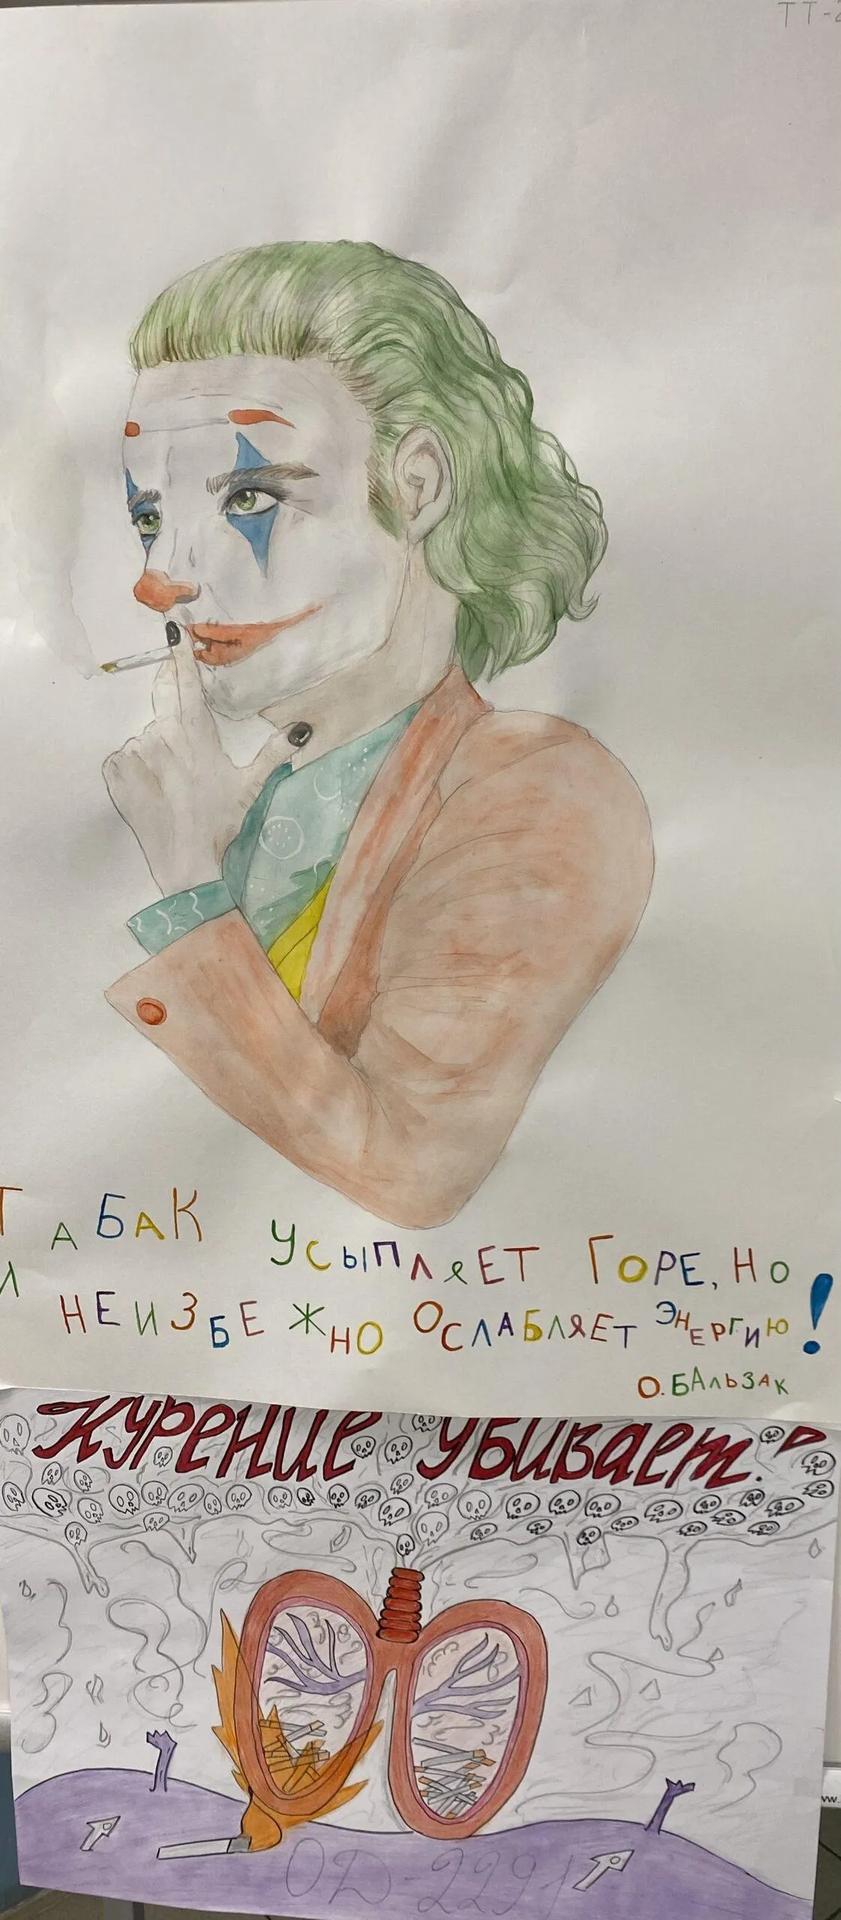 ТТ-2
ТАБАК УСЫПЛЯЕТ ГОРЕ, НО
И НЕИЗБЕЖНО ОСЛАБЛЯЕТ ЭНЕРГИЮ!
О. БАЛЬЗАК
Курение убивает.
ОД-2291